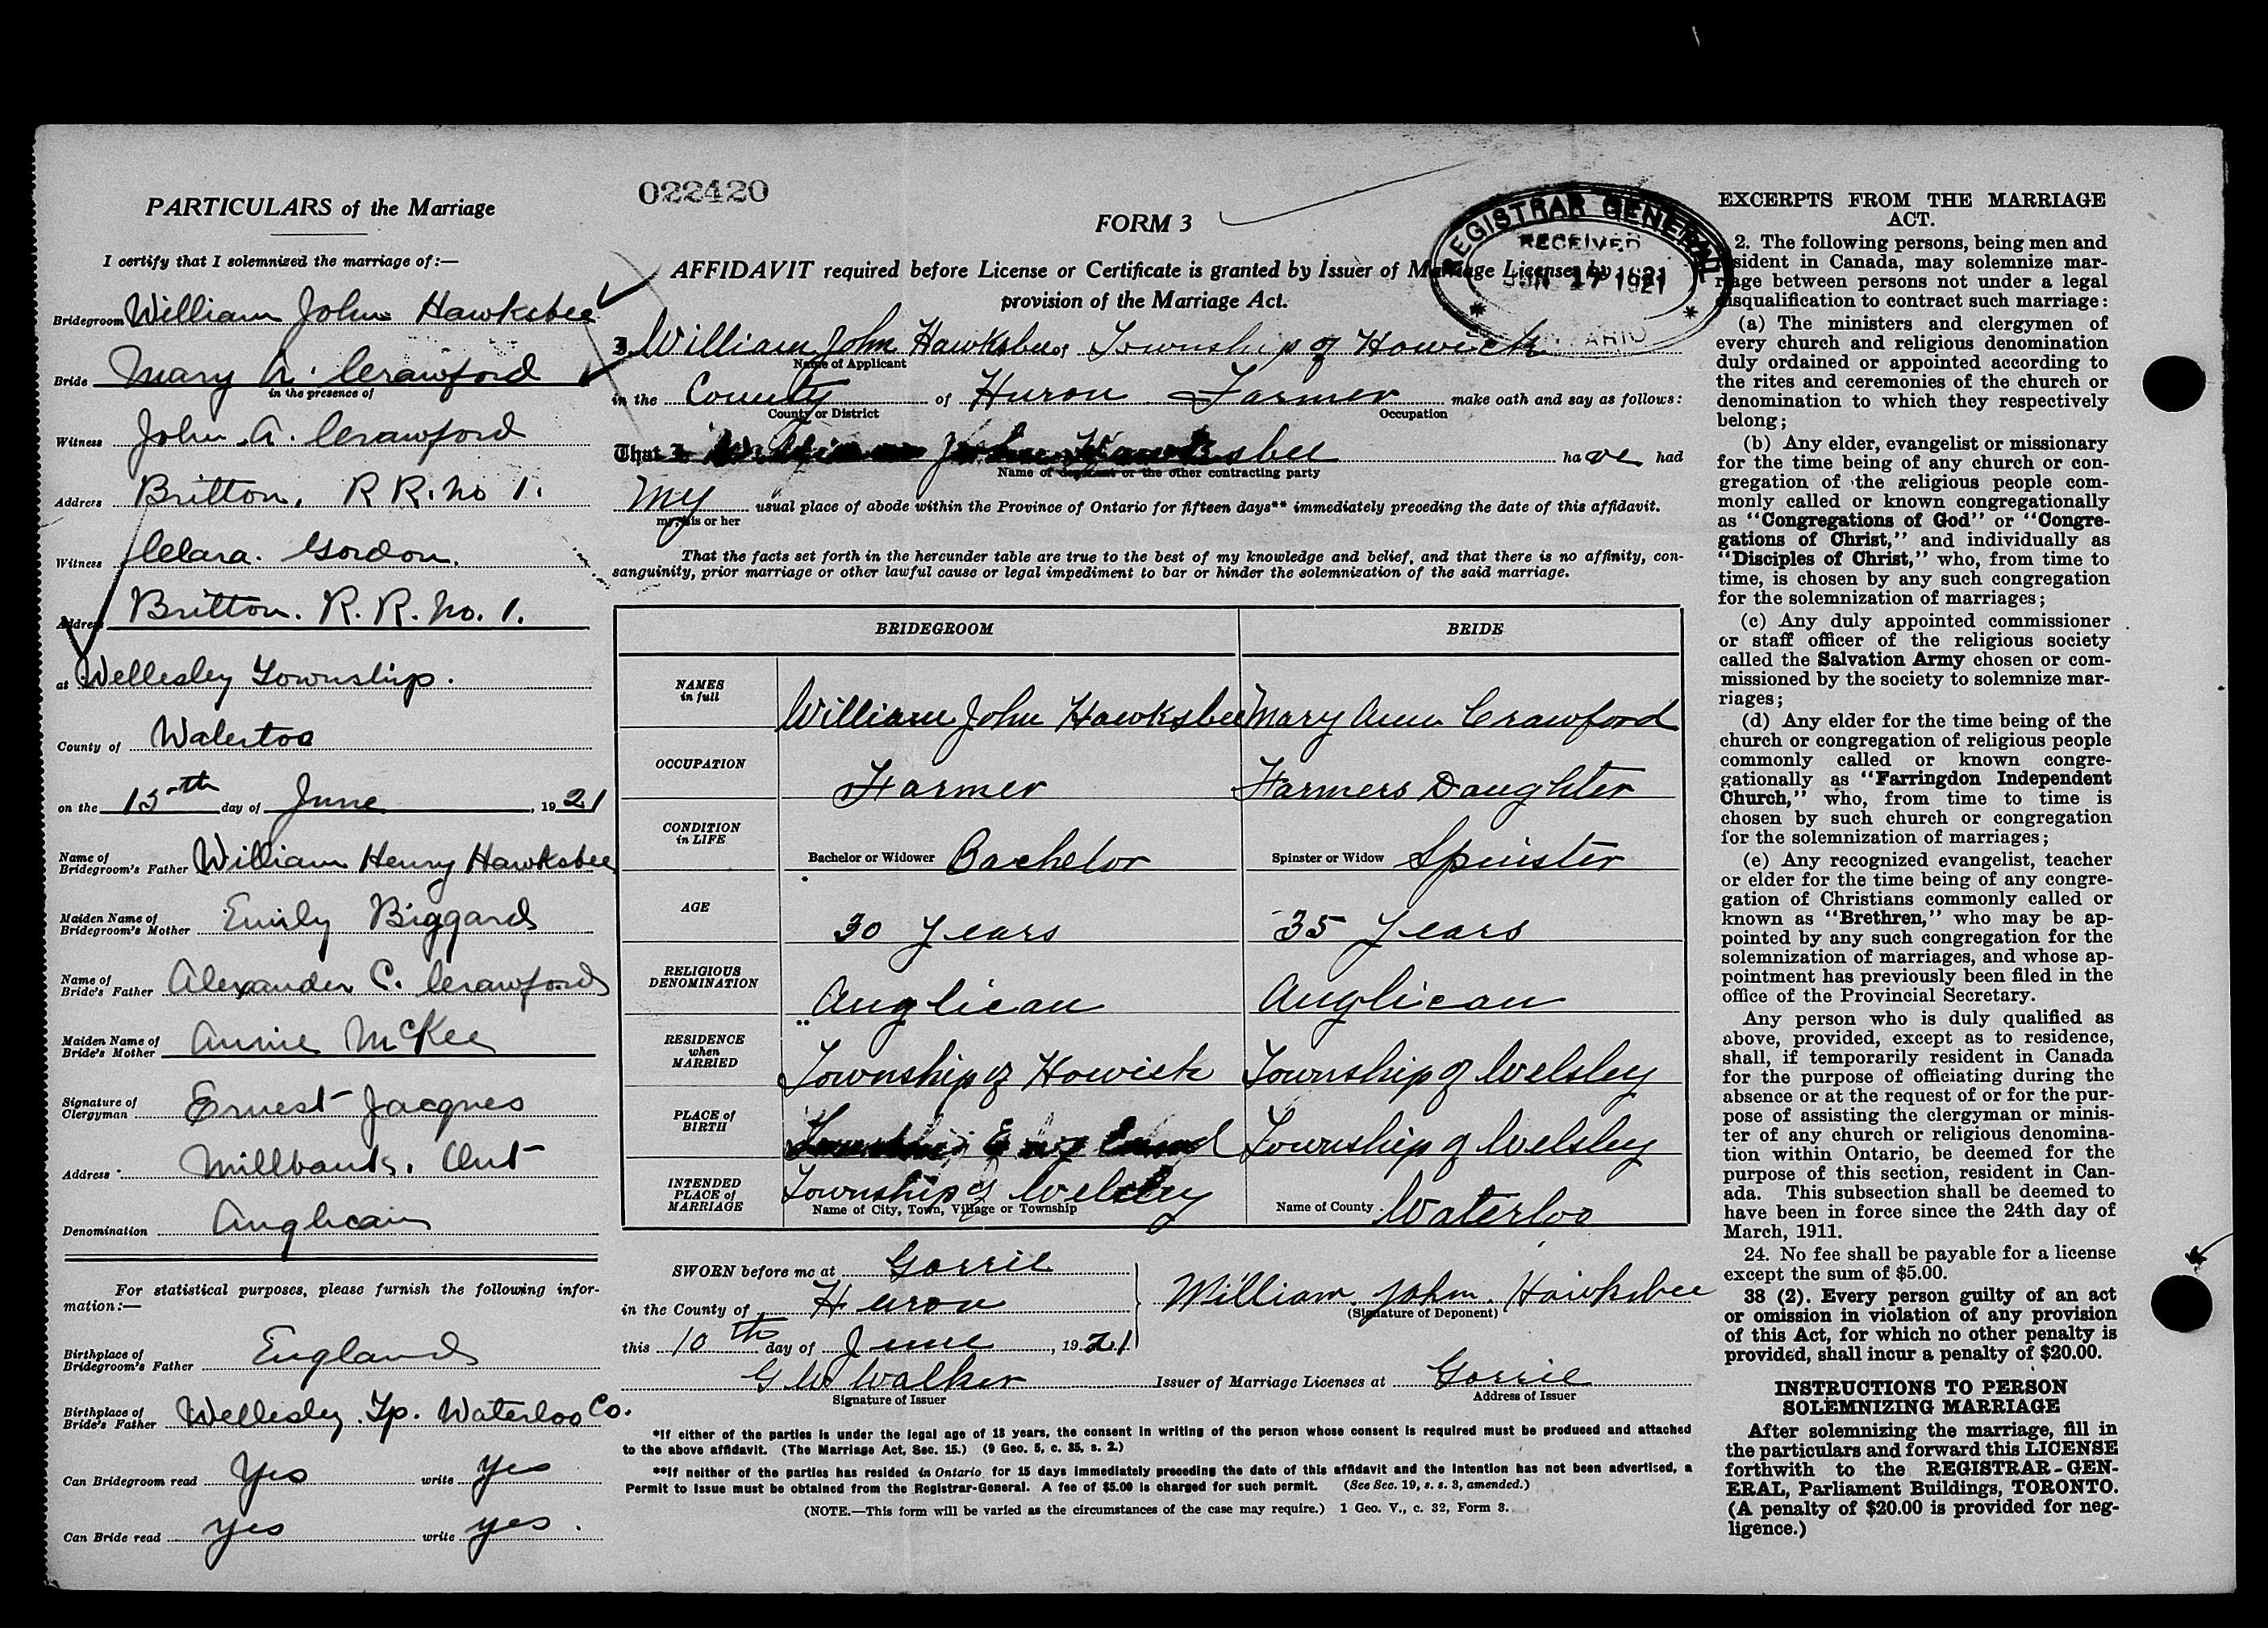 PARTICULARS of the Marriage
I certify that I solemnized the marriage of:—
Bridegroom William John Hawksbee
Bride Mary A. Crawford
in the presence of
Witness John A. Crawford
Address Britton, R R. No 1.
Witness Clara. Gordon.
Address Britton. R. R. No. 1.
at Wellesley Township.
County of Waterloo
on the 15th day of June, 1921
Name of
Bridegroom's Father William Henry Hawksbee
Maiden Name of
Bridegroom's Mother Emily Biggard
Name of
Bride's Father Alexander C. Crawford
Maiden Name of
Bride's Mother Annie McKee
Signature of
Clergyman Ernest Jacques
Address Millbank. Ont
Denomination Anglican
For statistical purposes, please furnish the following infor-
mation:—
Birthplace of
Bridegroom's Father England
Birthplace of
Bride's Father Wellesley. Tp. Waterloo Co.
Can Bridegroom read Yes write Yes
Can Bride read yes write yes.
022420
FORM 3
REGISTRAR GENERAL
RECEIVED
JUN 17 1921
ONTARIO
AFFIDAVIT required before License or Certificate is granted by Issuer of Marriage Licenses by
provision of the Marriage Act.
I, William John Hawksbee of Township of Howick
Name of Applicant
in the County of Huron Farmer make oath and say as follows:
County or District Occupation
That I William John Hawksbee have had
Name of deponent or the other contracting party
My usual place of abode within the Province of Ontario for fifteen days** immediately preceding the date of this affidavit.
my, his or her
That the facts set forth in the hereunder table are true to the best of my knowledge and belief, and that there is no affinity, con-
sanguinity, prior marriage or other lawful cause or legal impediment to bar or hinder the solemnization of the said marriage.
BRIDEGROOM BRIDE
NAMES
in full
William John Hawksbee Mary Ann Crawford
OCCUPATION
Farmer Farmers Daughter
CONDITION
in LIFE
Bachelor or Widower Bachelor Spinster or Widow Spinster
AGE
30 Years 35 Years
RELIGIOUS
DENOMINATION
Anglican Anglican
RESIDENCE
when
MARRIED
Township of Howick Township of Welsley
PLACE of
BIRTH
England Township of Welsley
INTENDED
PLACE of
MARRIAGE
Township of Welsley Name of County Waterloo
Name of City, Town, Village or Township
SWORN before me at Gorrie
in the County of Huron
this 10th day of June, 1921
William. John. Hawksbee
(Signature of Deponent)
G W Walker Issuer of Marriage Licenses at Gorrie
Signature of Issuer Address of Issuer
*If either of the parties is under the legal age of 18 years, the consent in writing of the person whose consent is required must be produced and attached
to the above affidavit. (The Marriage Act, Sec. 15.) (9 Geo. 5, c. 35, s. 2.)
**If neither of the parties has resided in Ontario for 15 days immediately preceding the date of this affidavit and the intention has not been advertised, a
Permit to issue must be obtained from the Registrar-General. A fee of $5.00 is charged for such permit. (See Sec. 19, s. s. 3, amended.)
(NOTE.—This form will be varied as the circumstances of the case may require.) 1 Geo. V., c. 32, Form 3.
EXCERPTS FROM THE MARRIAGE
ACT.
2. The following persons, being men and
resident in Canada, may solemnize mar-
riage between persons not under a legal
disqualification to contract such marriage:
(a) The ministers and clergymen of
every church and religious denomination
duly ordained or appointed according to
the rites and ceremonies of the church or
denomination to which they respectively
belong;
(b) Any elder, evangelist or missionary
for the time being of any church or con-
gregation of the religious people com-
monly called or known congregationally
as "Congregations of God" or "Congre-
gations of Christ," and individually as
"Disciples of Christ," who, from time to
time, is chosen by any such congregation
for the solemnization of marriages;
(c) Any duly appointed commissioner
or staff officer of the religious society
called the Salvation Army chosen or com-
missioned by the society to solemnize mar-
riages;
(d) Any elder for the time being of the
church or congregation of religious people
commonly called or known congre-
gationally as "Farringdon Independent
Church," who, from time to time is
chosen by such church or congregation
for the solemnization of marriages;
(e) Any recognized evangelist, teacher
or elder for the time being of any congre-
gation of Christians commonly called or
known as "Brethren," who may be ap-
pointed by any such congregation for the
solemnization of marriages, and whose ap-
pointment has previously been filed in the
office of the Provincial Secretary.
Any person who is duly qualified as
above, provided, except as to residence,
shall, if temporarily resident in Canada
for the purpose of officiating during the
absence or at the request of or for the pur-
pose of assisting the clergyman or minis-
ter of any church or religious denomina-
tion within Ontario, be deemed for the
purpose of this section, resident in Can-
ada. This subsection shall be deemed to
have been in force since the 24th day of
March, 1911.
24. No fee shall be payable for a license
except the sum of $5.00.
38 (2). Every person guilty of an act
or omission in violation of any provision
of this Act, for which no other penalty is
provided, shall incur a penalty of $20.00.
INSTRUCTIONS TO PERSON
SOLEMNIZING MARRIAGE
After solemnizing the marriage, fill in
the particulars and forward this LICENSE
forthwith to the REGISTRAR-GEN-
ERAL, Parliament Buildings, TORONTO.
(A penalty of $20.00 is provided for neg-
ligence.)